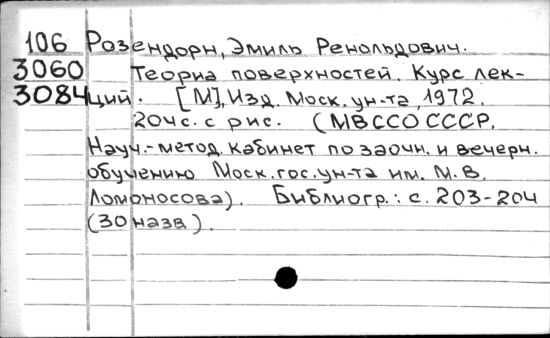 106 Розендорн, Эмиль Ренольдович.
3060 Теориа поверхностей. Курс лек-
3084 ций. [М], Изд. Моск. ун-та, 1972.
204с. с рис. (МВССО СССР.
Науч.-метод. кабинет по заочн. и вечерн.
обучению Моск. гос. ун-та им. М. В.
Ломоносова). Библиогр.: с. 203-204
(30 назв.).